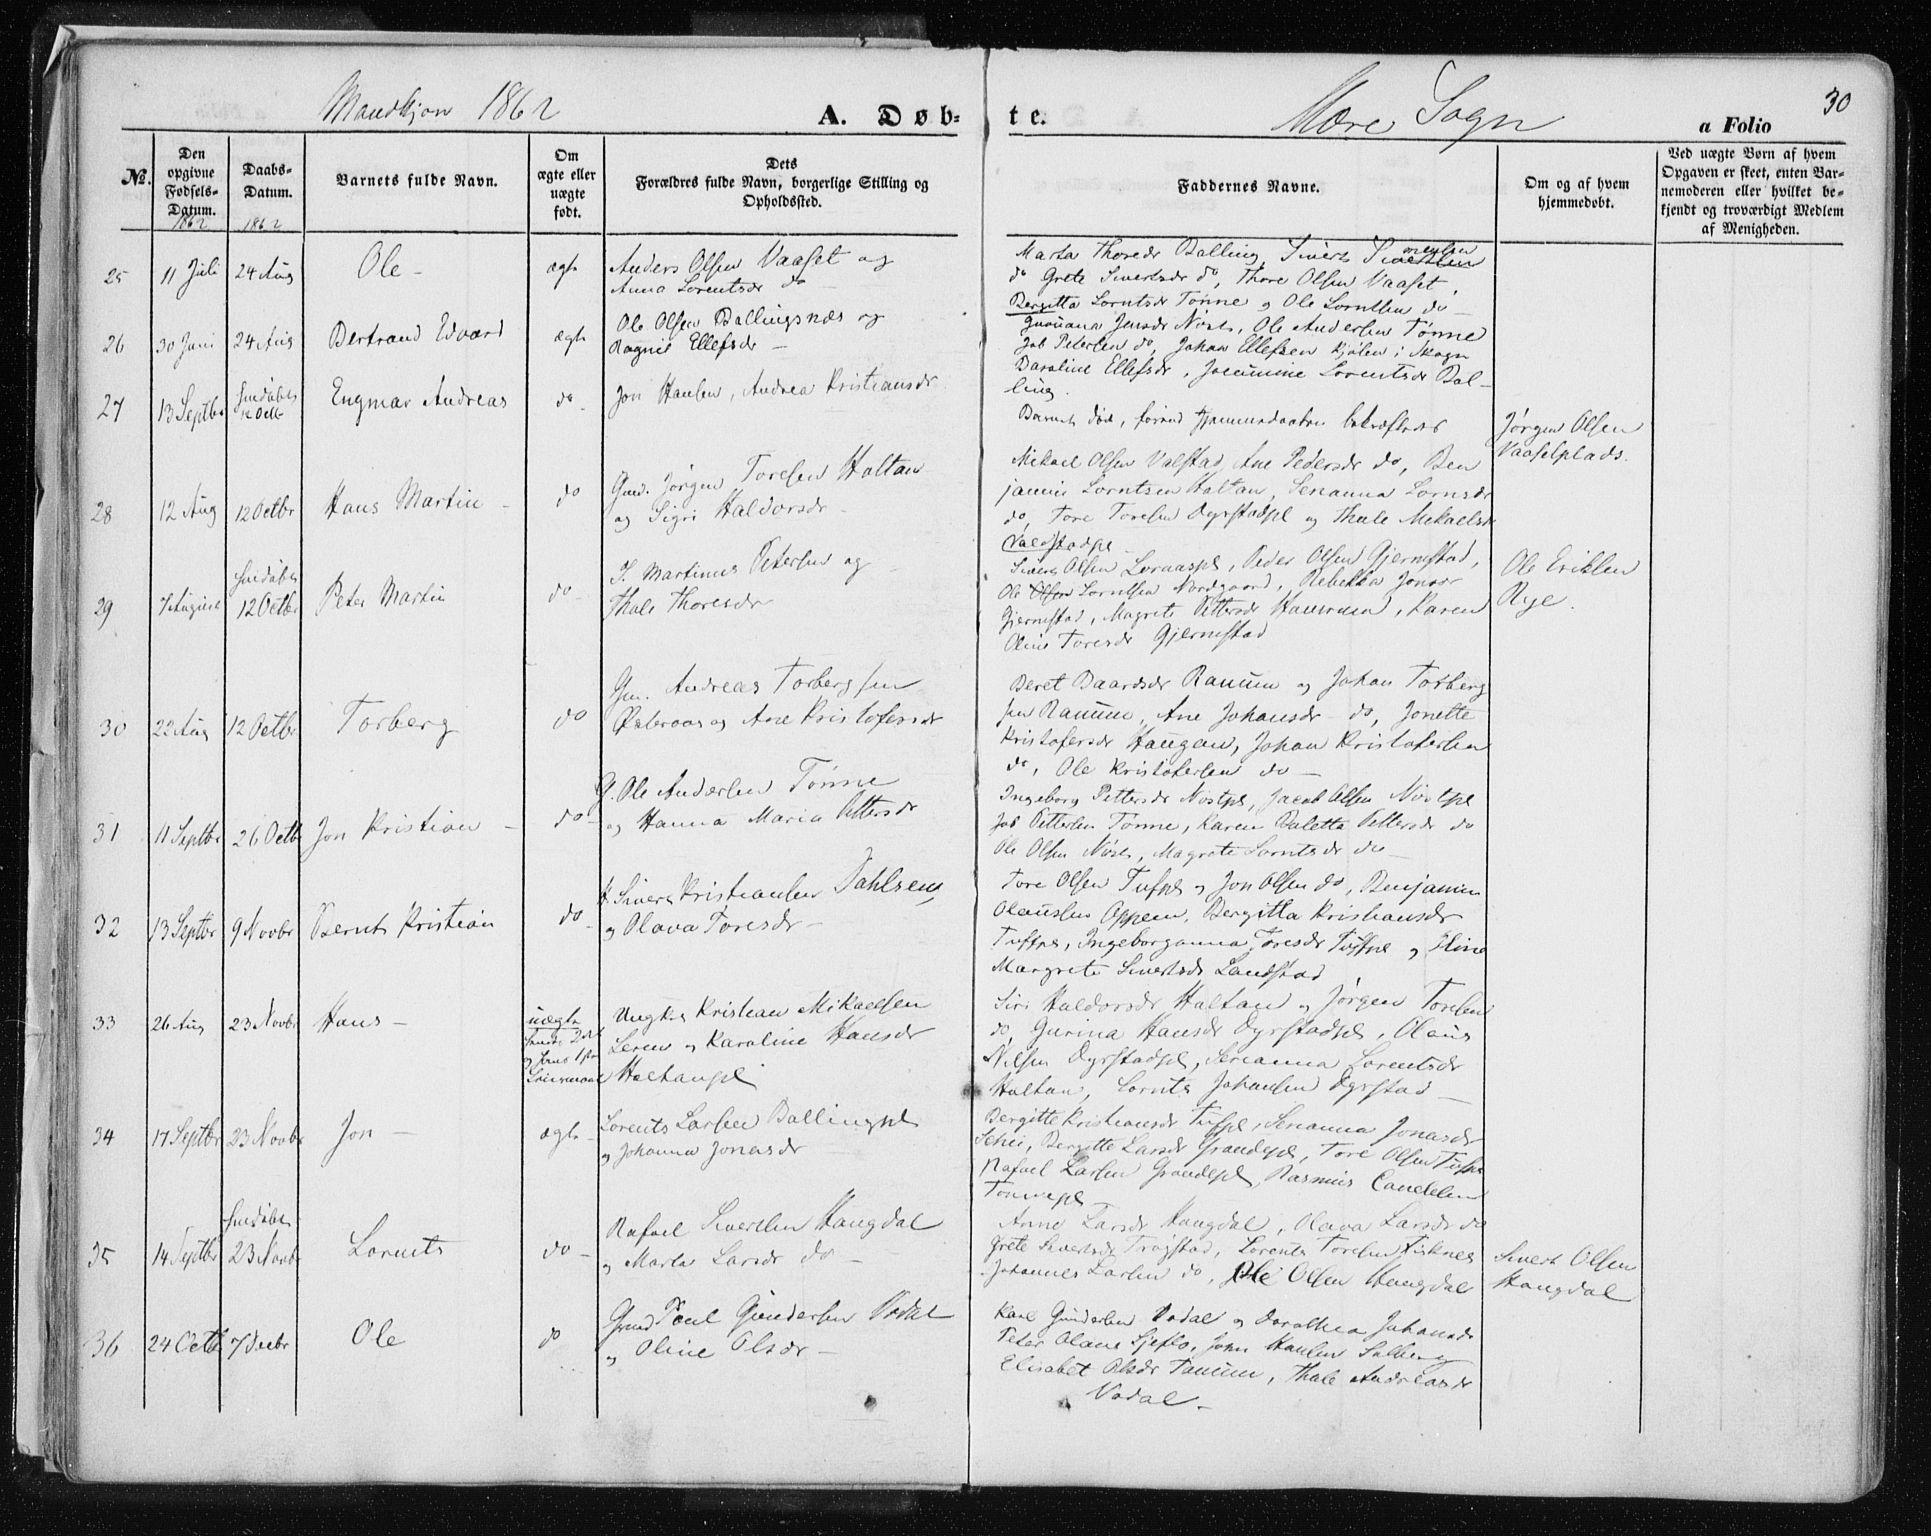 Mandkjøn 1862 A. Døb= te. Mære Sogn a Folio 30
No. Den opgivne Fødsels-Datum. Daabs-Datum. Barnets fulde Navn. Om ægte eller uægte født. Dets Forældres fulde Navn, borgerlige Stilling og Opholdssted. Faddernes Navne. Om og af hvem hjemmedøbt. Ved uægte Børn af hvem Opgaven er skeet, enten Barnemoderen eller hvilket bekjendt og troværdigt Medlem af Menigheden.
1862 1862
25 11 Juli 24 Aug Ole - ægte Anders Olsen Vaaset og
Anna Lorentsdr do -
Marta Thoresdr Balling, Sivert
do Grete Sivertsdr do, Thore Olsen Vaaset,
Bergitta Lorntsdr Tønne og Ole Lorntsen do -
26 30 Juni 24 Aug Bertrand Edvard ægte Ole Olsen Ballingsnæs og
Ragnil Ellefsdr -
Jensdr Nøst, Ole Andersen Tønne
Job Petersen do, Johan Ellefsen Kjølen i Skogn
Baroline Ellefsdr, Jacumine Lorentsdr Bal-
ling.
27 13 Septbr 12 Octb Engmar Andreas do Jon Hansen, Andrea Kristiansdr
Barnet død, førend Hjemmedaaben bekræftedes
Jørgen Olsen
Vaasetplads.
28 12 Aug 12 Octbr Hans Martin - do Gmd. Jørgen Toresen Holtan
og Sigri Haldorsdr -
Mikael Olsen Valstad, Ane Pedersdr do, Ben
jamin Lorntsen Holtan, Serianna Lornsdr
do, Tore Toresen Dyrstadpl og Thale Mikaelsdr
Valstadpl -
29 7 August 12 Octbr Peter Martin do I. Martinus Petersen og
Thale Thoresdr
Sivert Olsen Lornaaspl, Peder Olsen Gjermstad,
Ole Lorntsen Nordgaard, Rebekka Jonsdr
Gjermstad, Magrete Pettersdr Hammum, Karen
Oline Toresdr Gjermstad
Ole Eriksen
Rye.
30 22 Aug 12 Octbr Torberg do Gm. Andreas Torbergsen
Østeraas og Ane Kristofersdr
Beret Baardsdr Ranum og Johan Torberg
sen Ranum, Ane Johansdr do, Jonette
Kristofersdr Haugan, Johan Kristofersen
do, Ole Kristofersen do -
31 11 Septbr 26 Octb Jon Kristian - do - G. Ole Andersen Tønne
og Hanna Maria Pettersdr
Ingeborg Pettersdr Nøstpl, Jacob Olsen Nøstpl
Job Pettersen Tønne, Karen Valetta Pettersdr do
Ole Olsen Nøst, Magrete Lorntsdr do -
32 13 Septbr 9 Novbr Bernt Kristian do Sivert Kristiansen Dahlsem,
og Olava Toresdr -
Tore Olsen Tufpl og Jon Olsen do, Benjamin
Olaussen Oppem, Bergitta Kristiansdr
Tuftpl, Ingeborganna Toresdr Tuftpl og Eline
Margrete Sivertsdr Landstad
33 26 Aug 23 Novbr Hans - uægte Ungk. Kristian Mikaelsen
Leren og Karoline Hansdr
Holtanpl
Siri Haldorsdr Holtan og Jørgen Toresen
do, Gurina Hansdr Dyrstadpl, Olaus
Nilsen Dyrstadpl, Serianna Lorentsdr
Holtan, Lornts Johansen Dyrstad -
34 17 Septbr 23 Novbr Jon - ægte - Lorents Larsen Ballingpl
og Johanna Jonasdr
Bergitte Kristiansdr Tufpl, Serianna Jonasdr
Schei, Bergitte Larsdr Grandepl, Tore Olsen Tufpl
Rafael Larsen Grandepl, Rasmus
Tønnepl -
35 14 Septbr 23 Novbr Lorents do - Rafael Sivertsen Haugdal
og Marta Larsdr do -
Anne Larsdr Haugdal, Olava Larsdr do
Grete Sivertsdr Trøgstad, Lorents Toresen Fisknes
Johannes Larsen do, Ole Olsen Haugdal
Sivert Olsen
Haugdal
36 24 Octb 7 Decbr Ole do Gmd Poul Gundersen Vodal
og Oline Olsdr -
Karl Gundersen Vodal og Dorothea Johansdr
Peter Olaus Sjeflo, John Hansen Salberg
Elisabet Olsdr Tanum, Thale Andreasdr
Vodal -